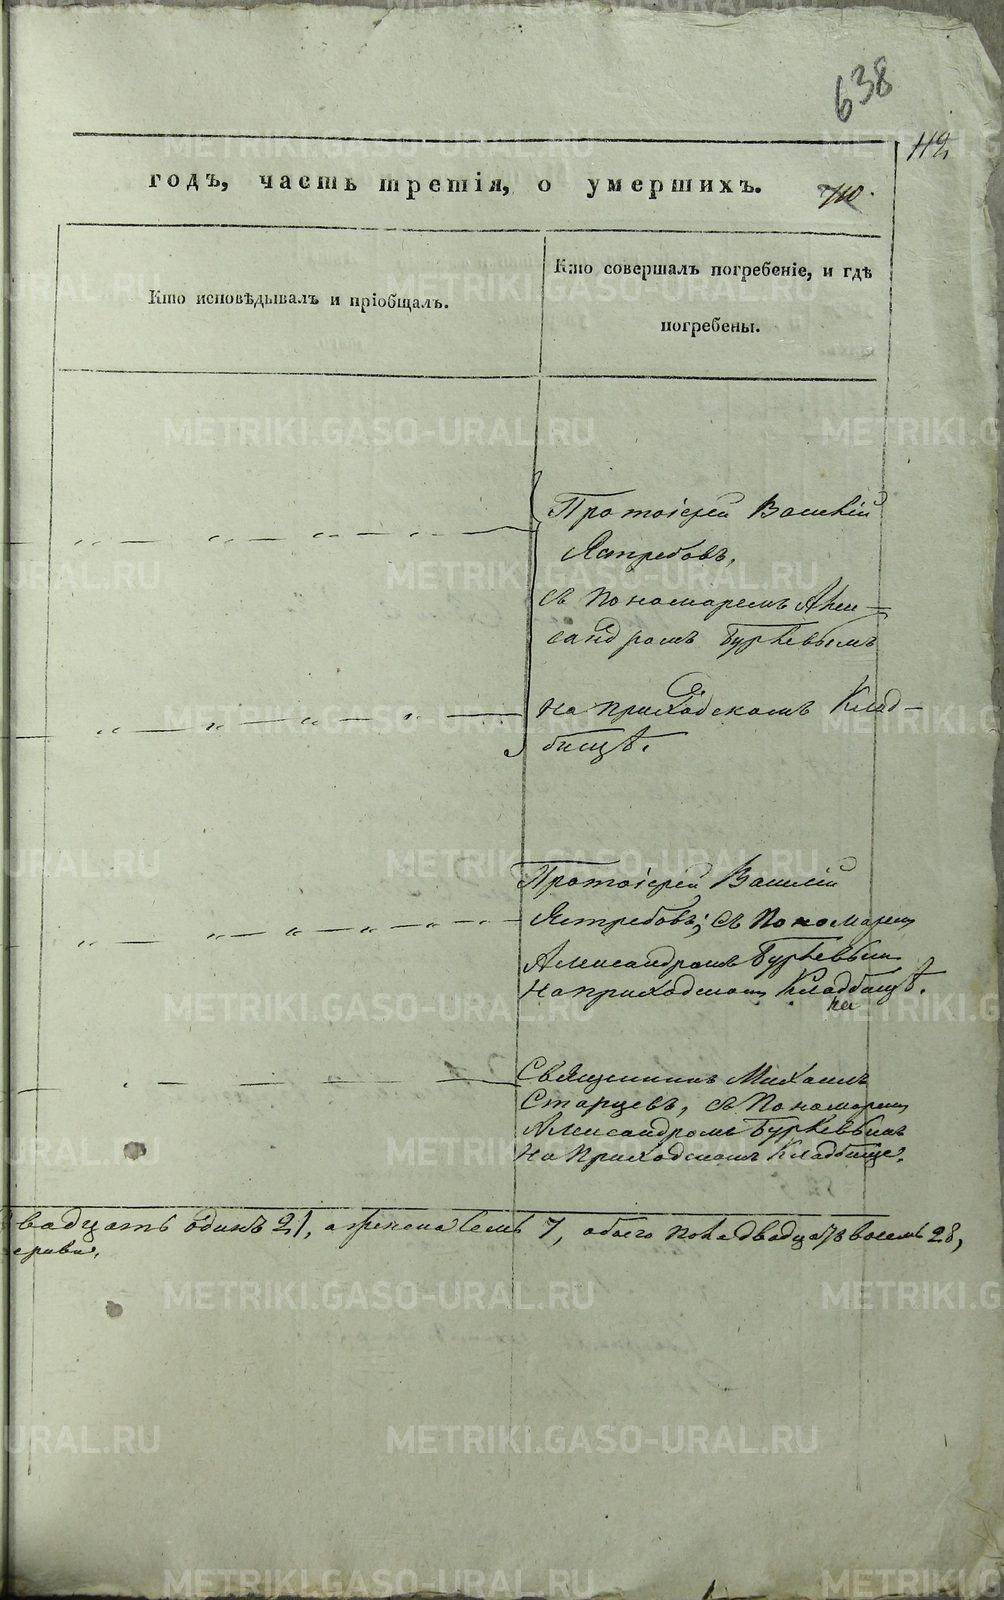 638
112
годъ, часть третія, о умершихъ.
710.
Кто исповѣдывалъ и пріобщалъ.
Кто совершалъ погребеніе, и гдѣ
погребены.
Протоіерей Василій
Ястребовъ,
съ Пономаремъ Алек=
сандромъ Буркевымъ
На приходскомъ Клад-
бищѣ.
Протоіерей Василій
Ястребовъ; съ Пономарем
Александромъ Буркевым
На приходском Кладбищѣ.
Священникъ Михаилъ
Старцевъ, съ Пономарем
Александромъ Буркевымъ
На Приходскомъ Кладбище.
вадцать одинъ 21, а женска семь 7, обоего пола двадцать восемь 28,
METRIKI.GASO-URAL.RU